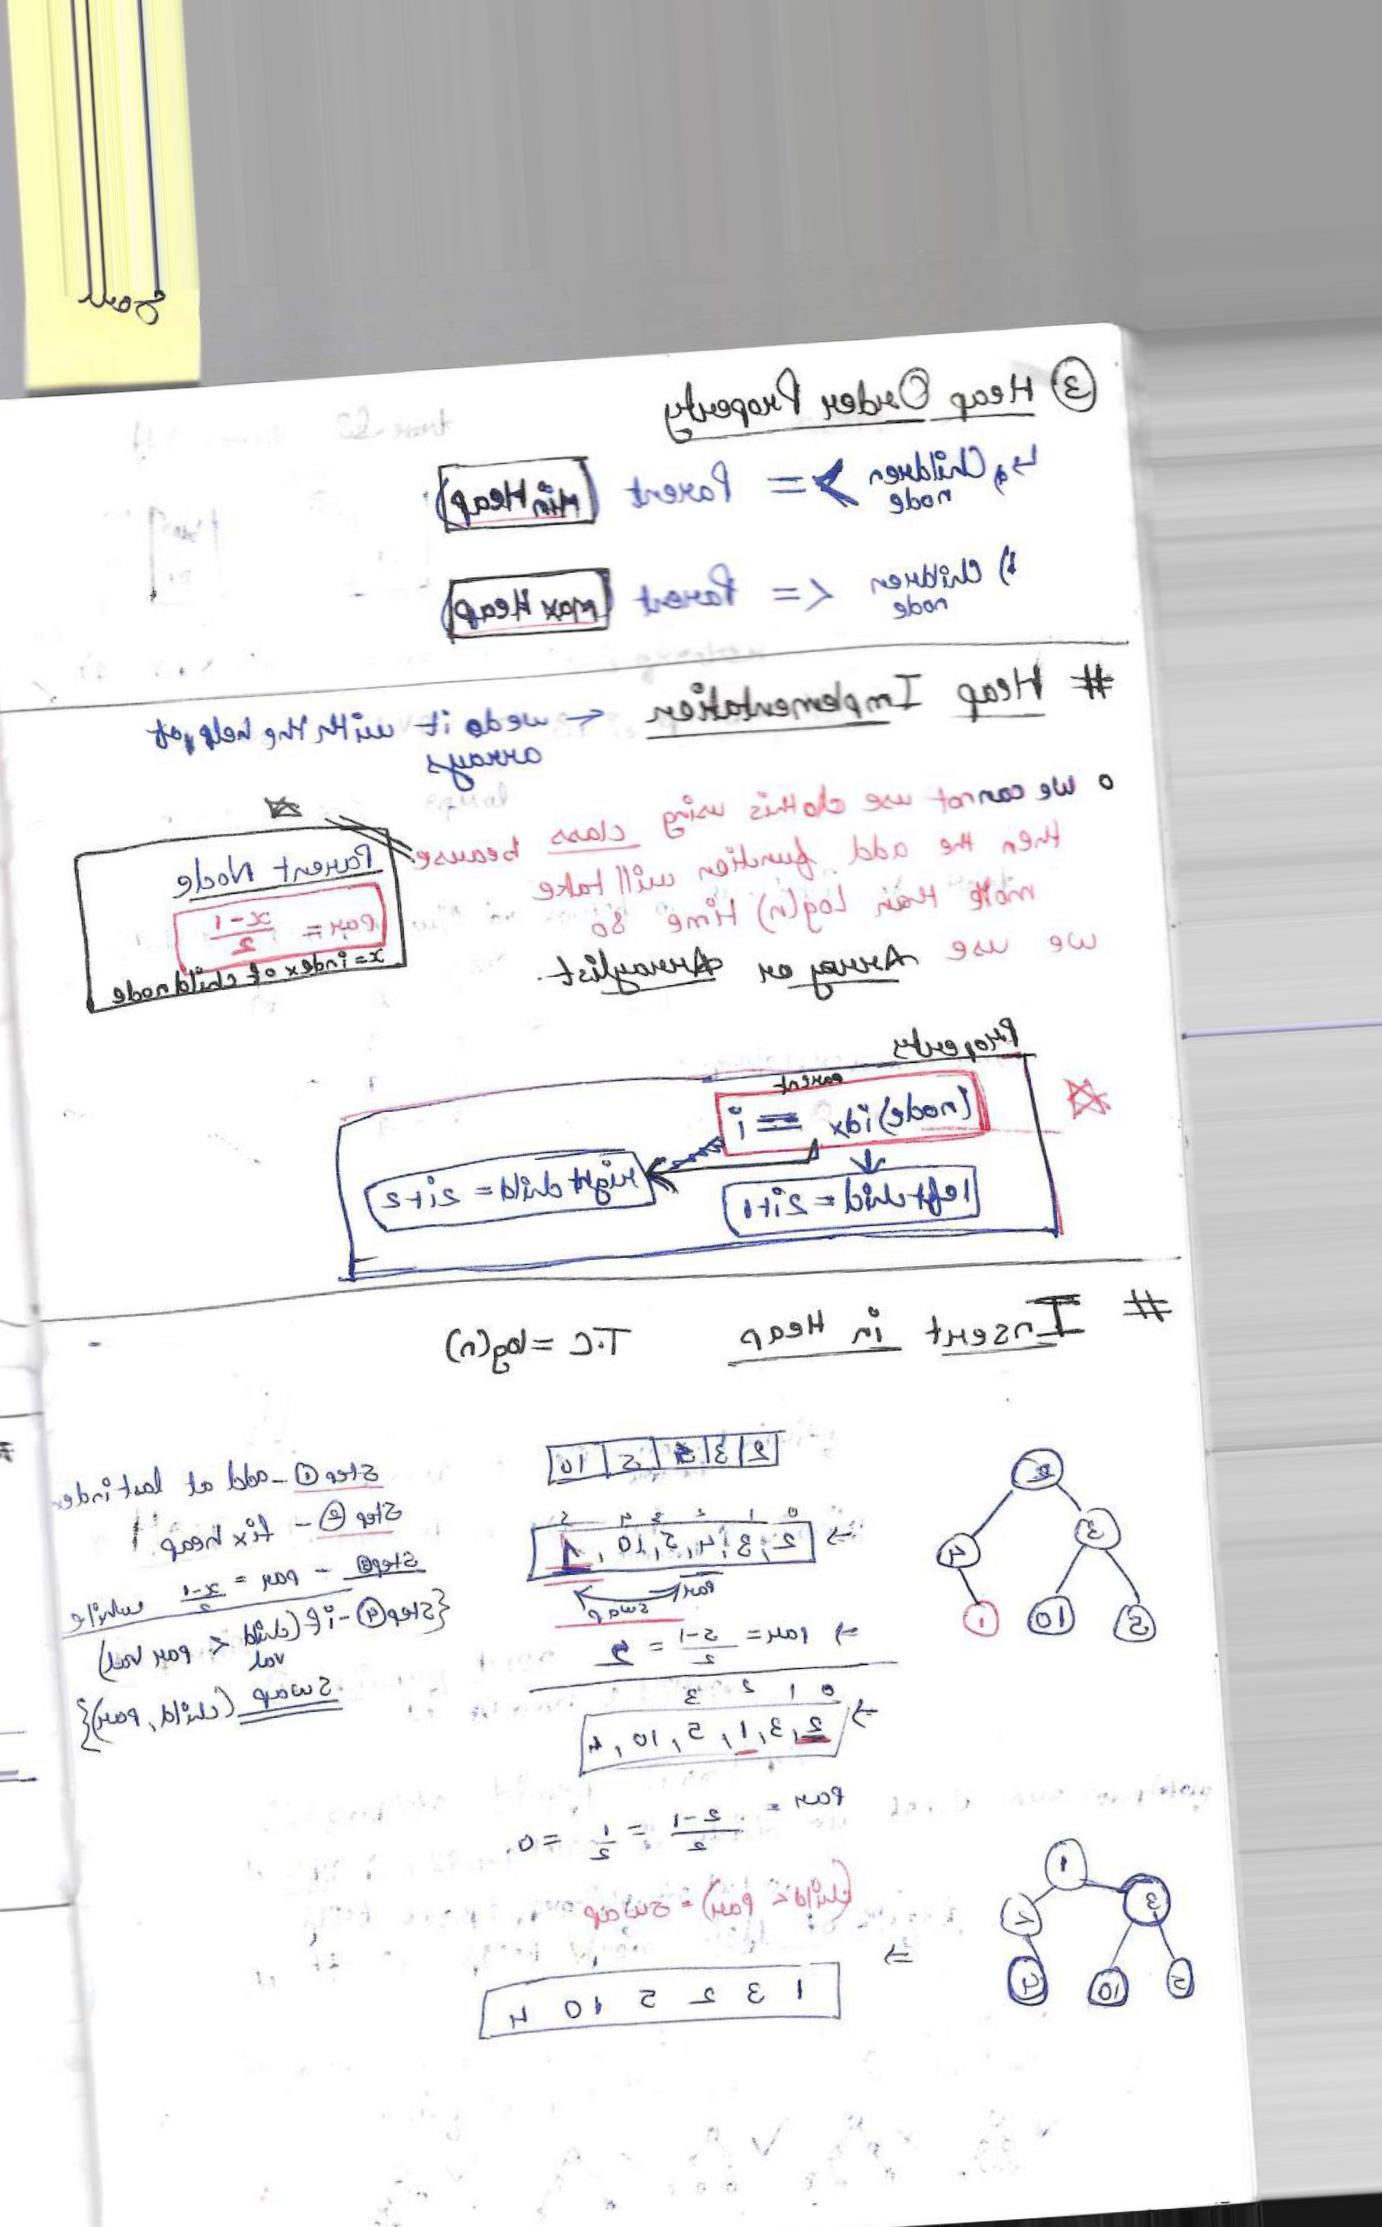 ③ Heap Order Property
↳ a, Children node >= Parent (Min Heap)
1) Children node <= Parent (max Heap)
# Heap Implementation ← we do it with the help of
arrays
o we cannot use do this using class because
then the add function will take
more than Log(n) time so
we use Array or Arraylist.
Parent Node
Par = x-1/2
x = index of child node
Property
parent
(node) idx = i
left chid = 2i+1
right child = 2i+2
# Insert in Heap T.C = log(n)
2 | 3 | 4 | 5 | 10
0 1 2 3 4 5
⇒ 2, 3, 4, 5, 10, 1
Par
swap
⇒ par = 5-1/2 = 2
0 1 2 3
⇒ 2, 3, 1, 5, 10, 4
Par = 2-1/2 = 1/2 = 0.
(child < par) = swap
⇒ 1 3 2 5 10 4
Step ① - add at last index
Step ② - fix heap
Step ③ - par = x-1/2 while
{Step ④ - if (child val < par val)
swap (child, par)}
2
3
4
5
10
1
1
3
2
5
10
4